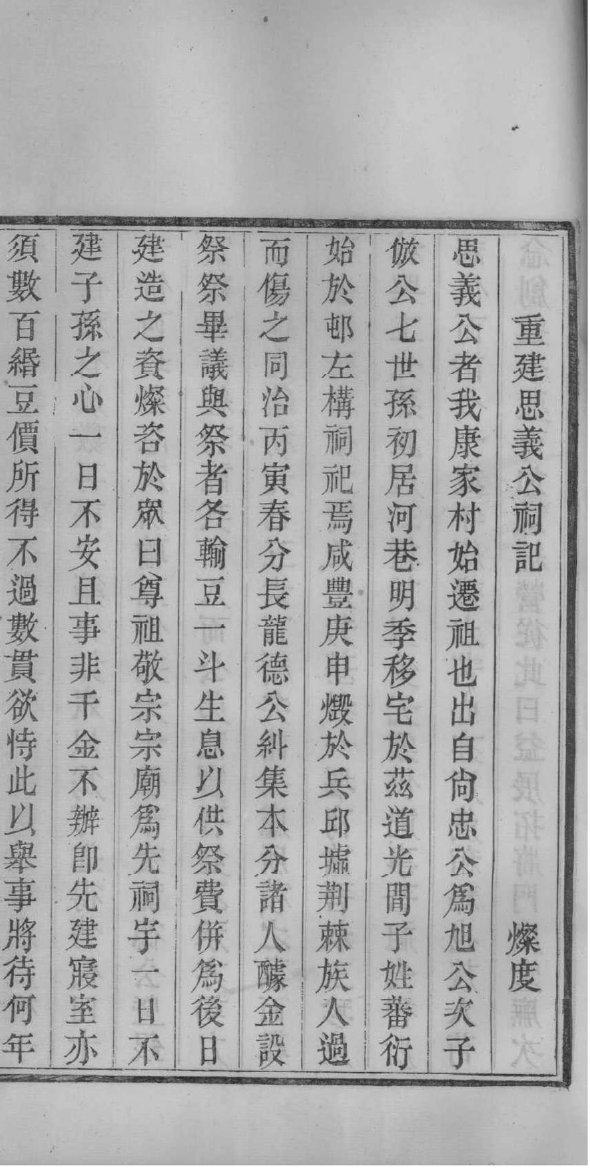 重建思義公祠記 燦度
思義公者我康家村始遷祖也出自尙忠公爲旭公次子
倣公七世孫初居河巷明季移宅於茲道光間子姓蕃衍
始於邨左構祠祀焉咸豐庚申燬於兵邱墟荆棘族人過
而傷之同治丙寅春分長龍德公糾集本分諸人醵金設
祭祭畢議與祭者各輸豆一斗生息以供祭費併爲後日
建造之資燦咨於眾曰尊祖敬宗宗廟爲先祠宇一日不
建子孫之心一日不安且事非千金不辦卽先建寢室亦
須數百緡豆價所得不過數貫欲恃此以舉事將待何年